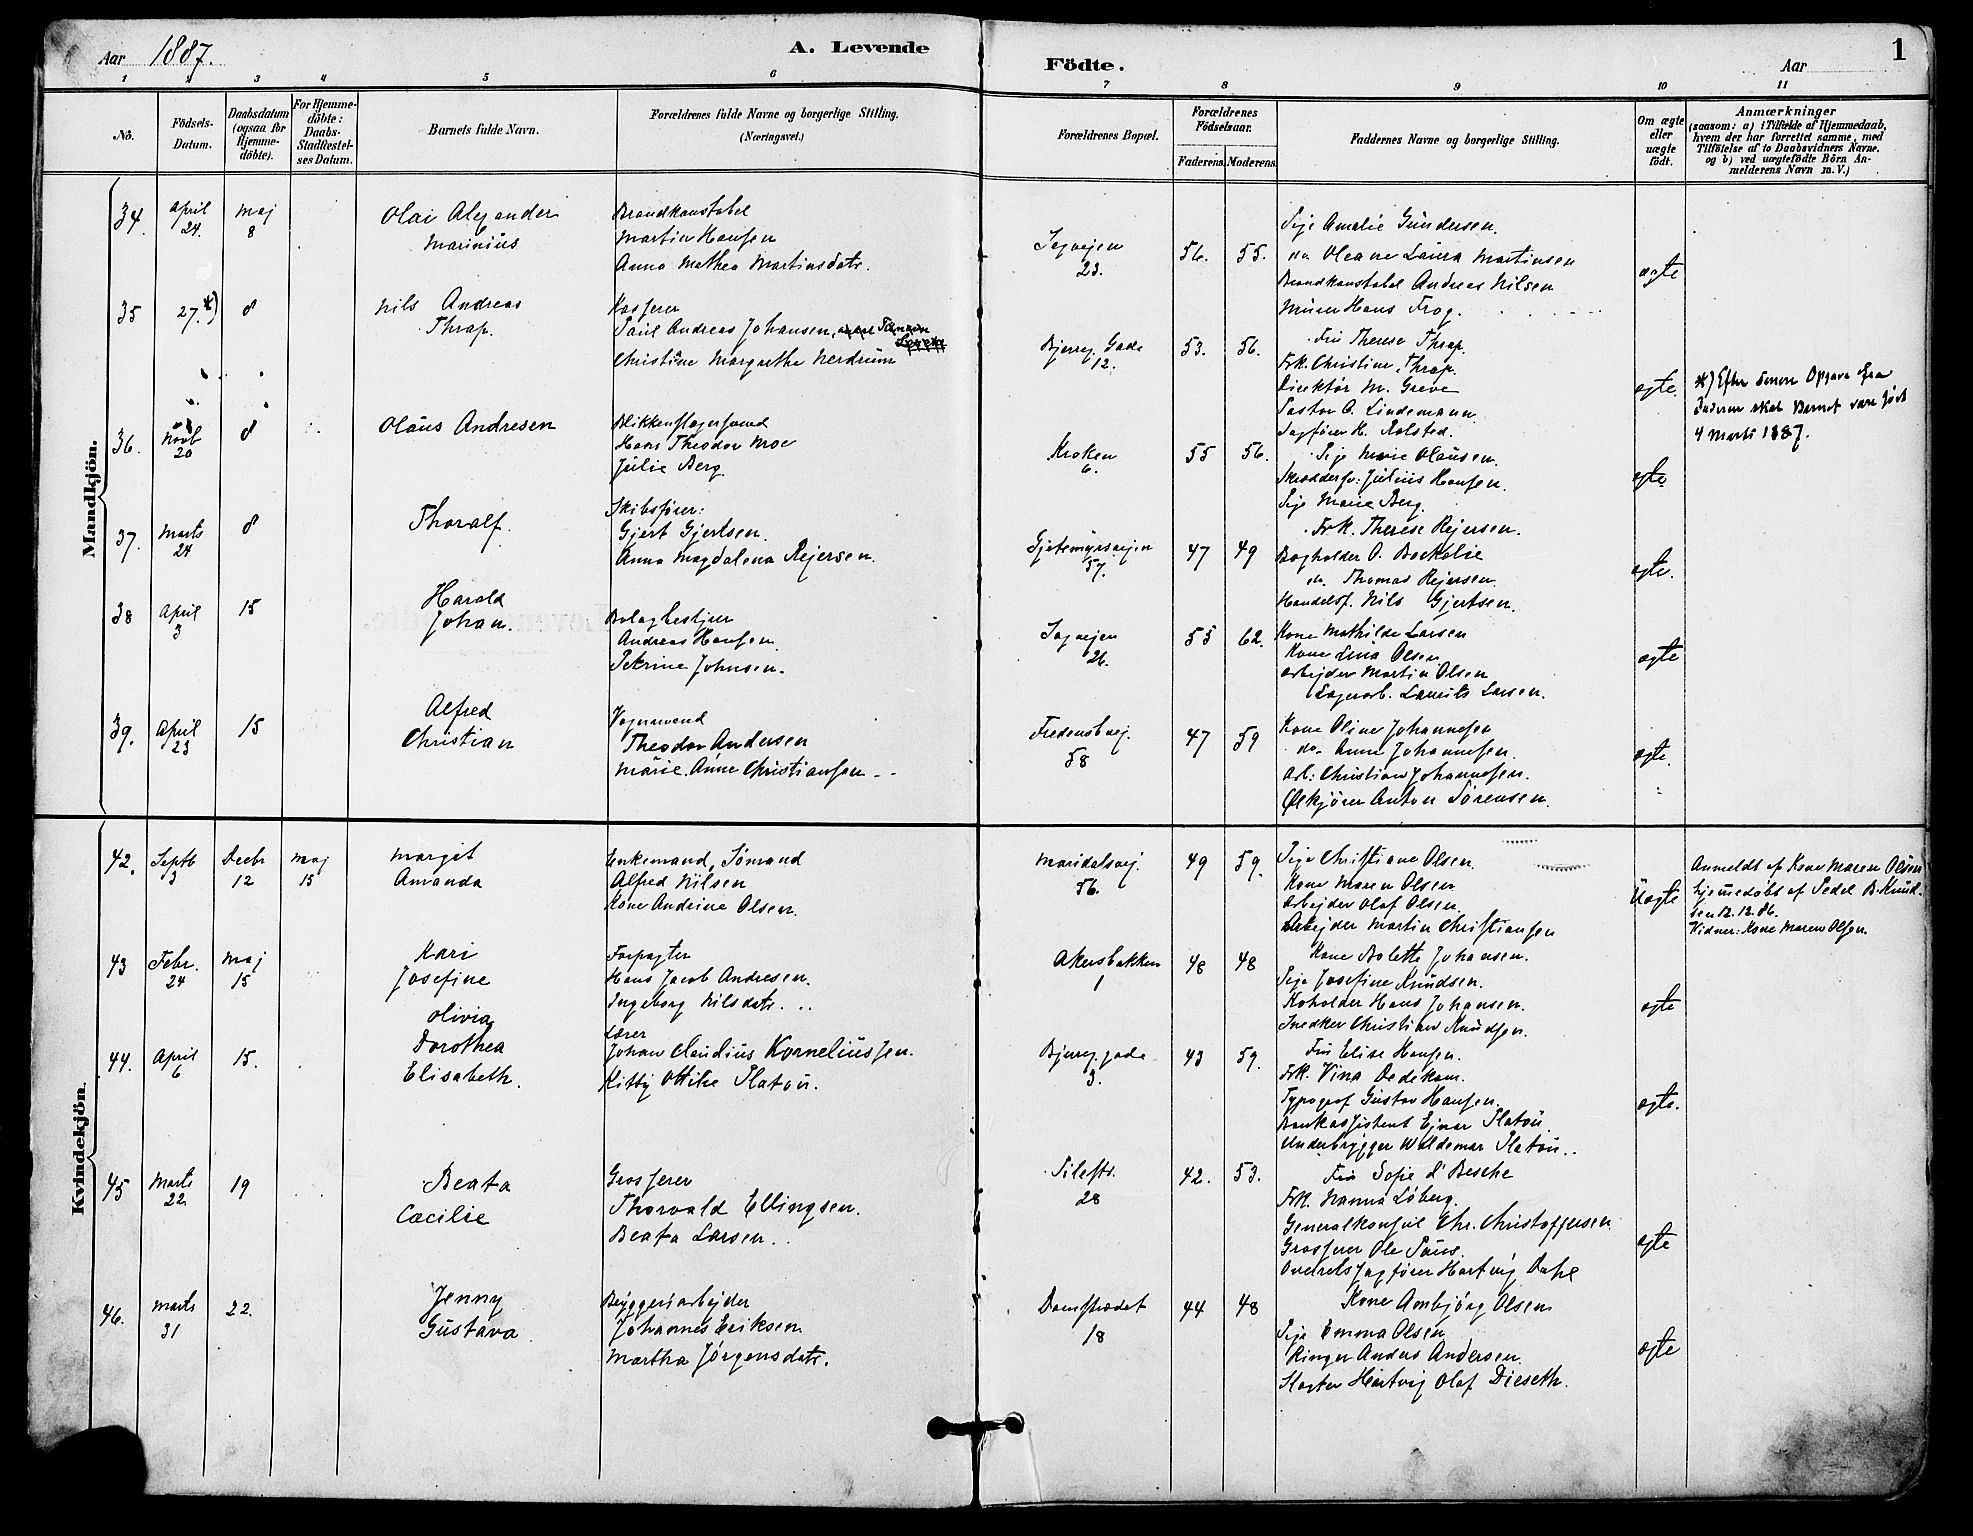 Aar 1887.
A. Levende
Födte.
Aar
1
1 2 3 4 5 6 7 8 9 10 11
No.
Födsels-
Datum.
Daabsdatum
(ogsaa for
Hjemme-
döbte).
For Hjemme-
döbte:
Daabs-
Stadfæstel-
ses Datum.
Barnets fulde Navn.
Forældrenes fulde Navne og borgerlige Stilling.
(Næringsvei.)
Forældrenes Bopæl.
Forældrenes
Födselsaar.
Faderens. Moderens.
Faddernes Navne og borgerlige Stilling.
Om ægte
eller
uægte
födt.
Anmærkninger
(saasom: a) i Tilfælde af Hjemmedaab,
hvem der har forrettet samme, med
Tilföielse af to Daabsvidners Navne.
og b) ved uægtefödte Börn An-
melderens Navn m. V.)
Mandkjön.
34. April 24. Maj 8
Olai Alexander
Marinius
Brandkonstabel
Martin Hansen
Anna Mathea Martinsdatr.
23. 56. 55.
Pige Amalie Gundersen.
do. Oleane Laura Martinsen
Brandkonstabel Andreas Nilsen
Murer Hans Frog.
ægte
35 27. *) 8
Nils Andreas
Thrap.
Kasserer
Paul Andreas Johansen,
Christine Margrethe Nerdrum
Bjerreg. Gade
12. 53. 56.
Fru Therese Thrap.
Frk. Christine Thrap.
Direktør M. Greve
Pastor O. Lindemann
Sagfører H. Rolsted.
ægte.
*) Efter senere Opgave fra
Faderen skal Barnet være født
4 Marts 1887.
36. Novb 20 8
Olaus Andresen
Blikkenslagersvend
Hans Theodor Moe
Julie Berg.
Kroken
6. 55 56.
Pige Marie Olausen.
Skræddersv: Julius Hansen.
Pige Marie Berg.
ægte
37. Marts 24 8
Thoralf.
Skibsfører:
Gjert Gjertsen.
Anna Magdalena Rejersen.
Gjetemyrsvejen
57. 47 49
Frk. Therese Rejersen.
Bogholder O. Bockelie
do. Thomas Rejersen.
Handelsf. Nils Gjertsen.
ægte.
38 April 3 15
Harald
Johan.
Andreas Hansen.
Petrine Johnsen.
26. 55 62.
Kone Mathilde Larsen
Kone Lina Olsen
Arbejder Martin Olsen
Lagerarb. Laurits Larsen.
ægte
39. April 23 15
Alfred
Christian
Vognmand
Theodor Andersen
Marie Anne Christiansen
Fredensbvej.
58 47 59
Kone Oline Johannesen
do. Anne Johannesen.
Arb: Christian Johannesen.
Ølkjører Anton Sørensen.
ægte.
Kvindekjön.
42. Septb 3 Decbr 12 Maj 15
Margit
Amanda
Enkemand, Sømand
Alfred Nilsen
Kone Andrine Olsen.
Maridalsvej.
56. 49 59.
Pige Christiane Olsen.
Kone Maren Olsen
Arbejder Olof Olsen.
Arbejder Martin Christiansen
Uægte
Anmeldt af Kone Maren Olsen
hjemmedøbt af Pedel B. Knud-
sen 12.12.86.
Vidner: Kone Maren Olsen.
43 Febr. 24 Maj 15
Kari
Josefine
Forpagter
Hans Jacob Andresen.
Ingeborg Nilsdatr.
Akersbakken
1 48 48
Kone Bolette Johansen.
Pige Josefine Knudsen.
Koholder Hans Johansen.
Snedker Christian Knudsen.
ægte
44. April 6 15.
Olivia
Dorothea
Elisabeth.
Lærer
Johan Claudius Korneliussen.
Kitty Ottilie Platou.
Bjerreg. gade
3. 43 59.
Fru Elise Hansen.
Frk. Vina Dedekam.
Typograf Gustav Hansen.
Bankassistent Ejnar Platou
Underbrygger Waldemar Platou.
ægte.
45 Marts 22. 19
Beata
Cæcilie
Grosserer
Thorvald Ellingsen.
Beata Larsen.
Pilestr.
28 42. 53.
Fru Sofie d'Besche
Frk. Nanna Løberg.
Generalkonsul Chr. Christoffersen
Grosserer Ole Paus.
Overretssagfører Hartvig Dahl
ægte
46. Marts 31 22.
Jenny
Gustava
Bryggeriarbejder
Johannes Eriksen.
Martha Jørgensdatr.
Damstrædet
18 44 48
Kone Ambjørg Olsen
Pige Emma Olsen
Ringer Anders Andersen.
Slagter Hartvig Olaf Dieseth.
ægte